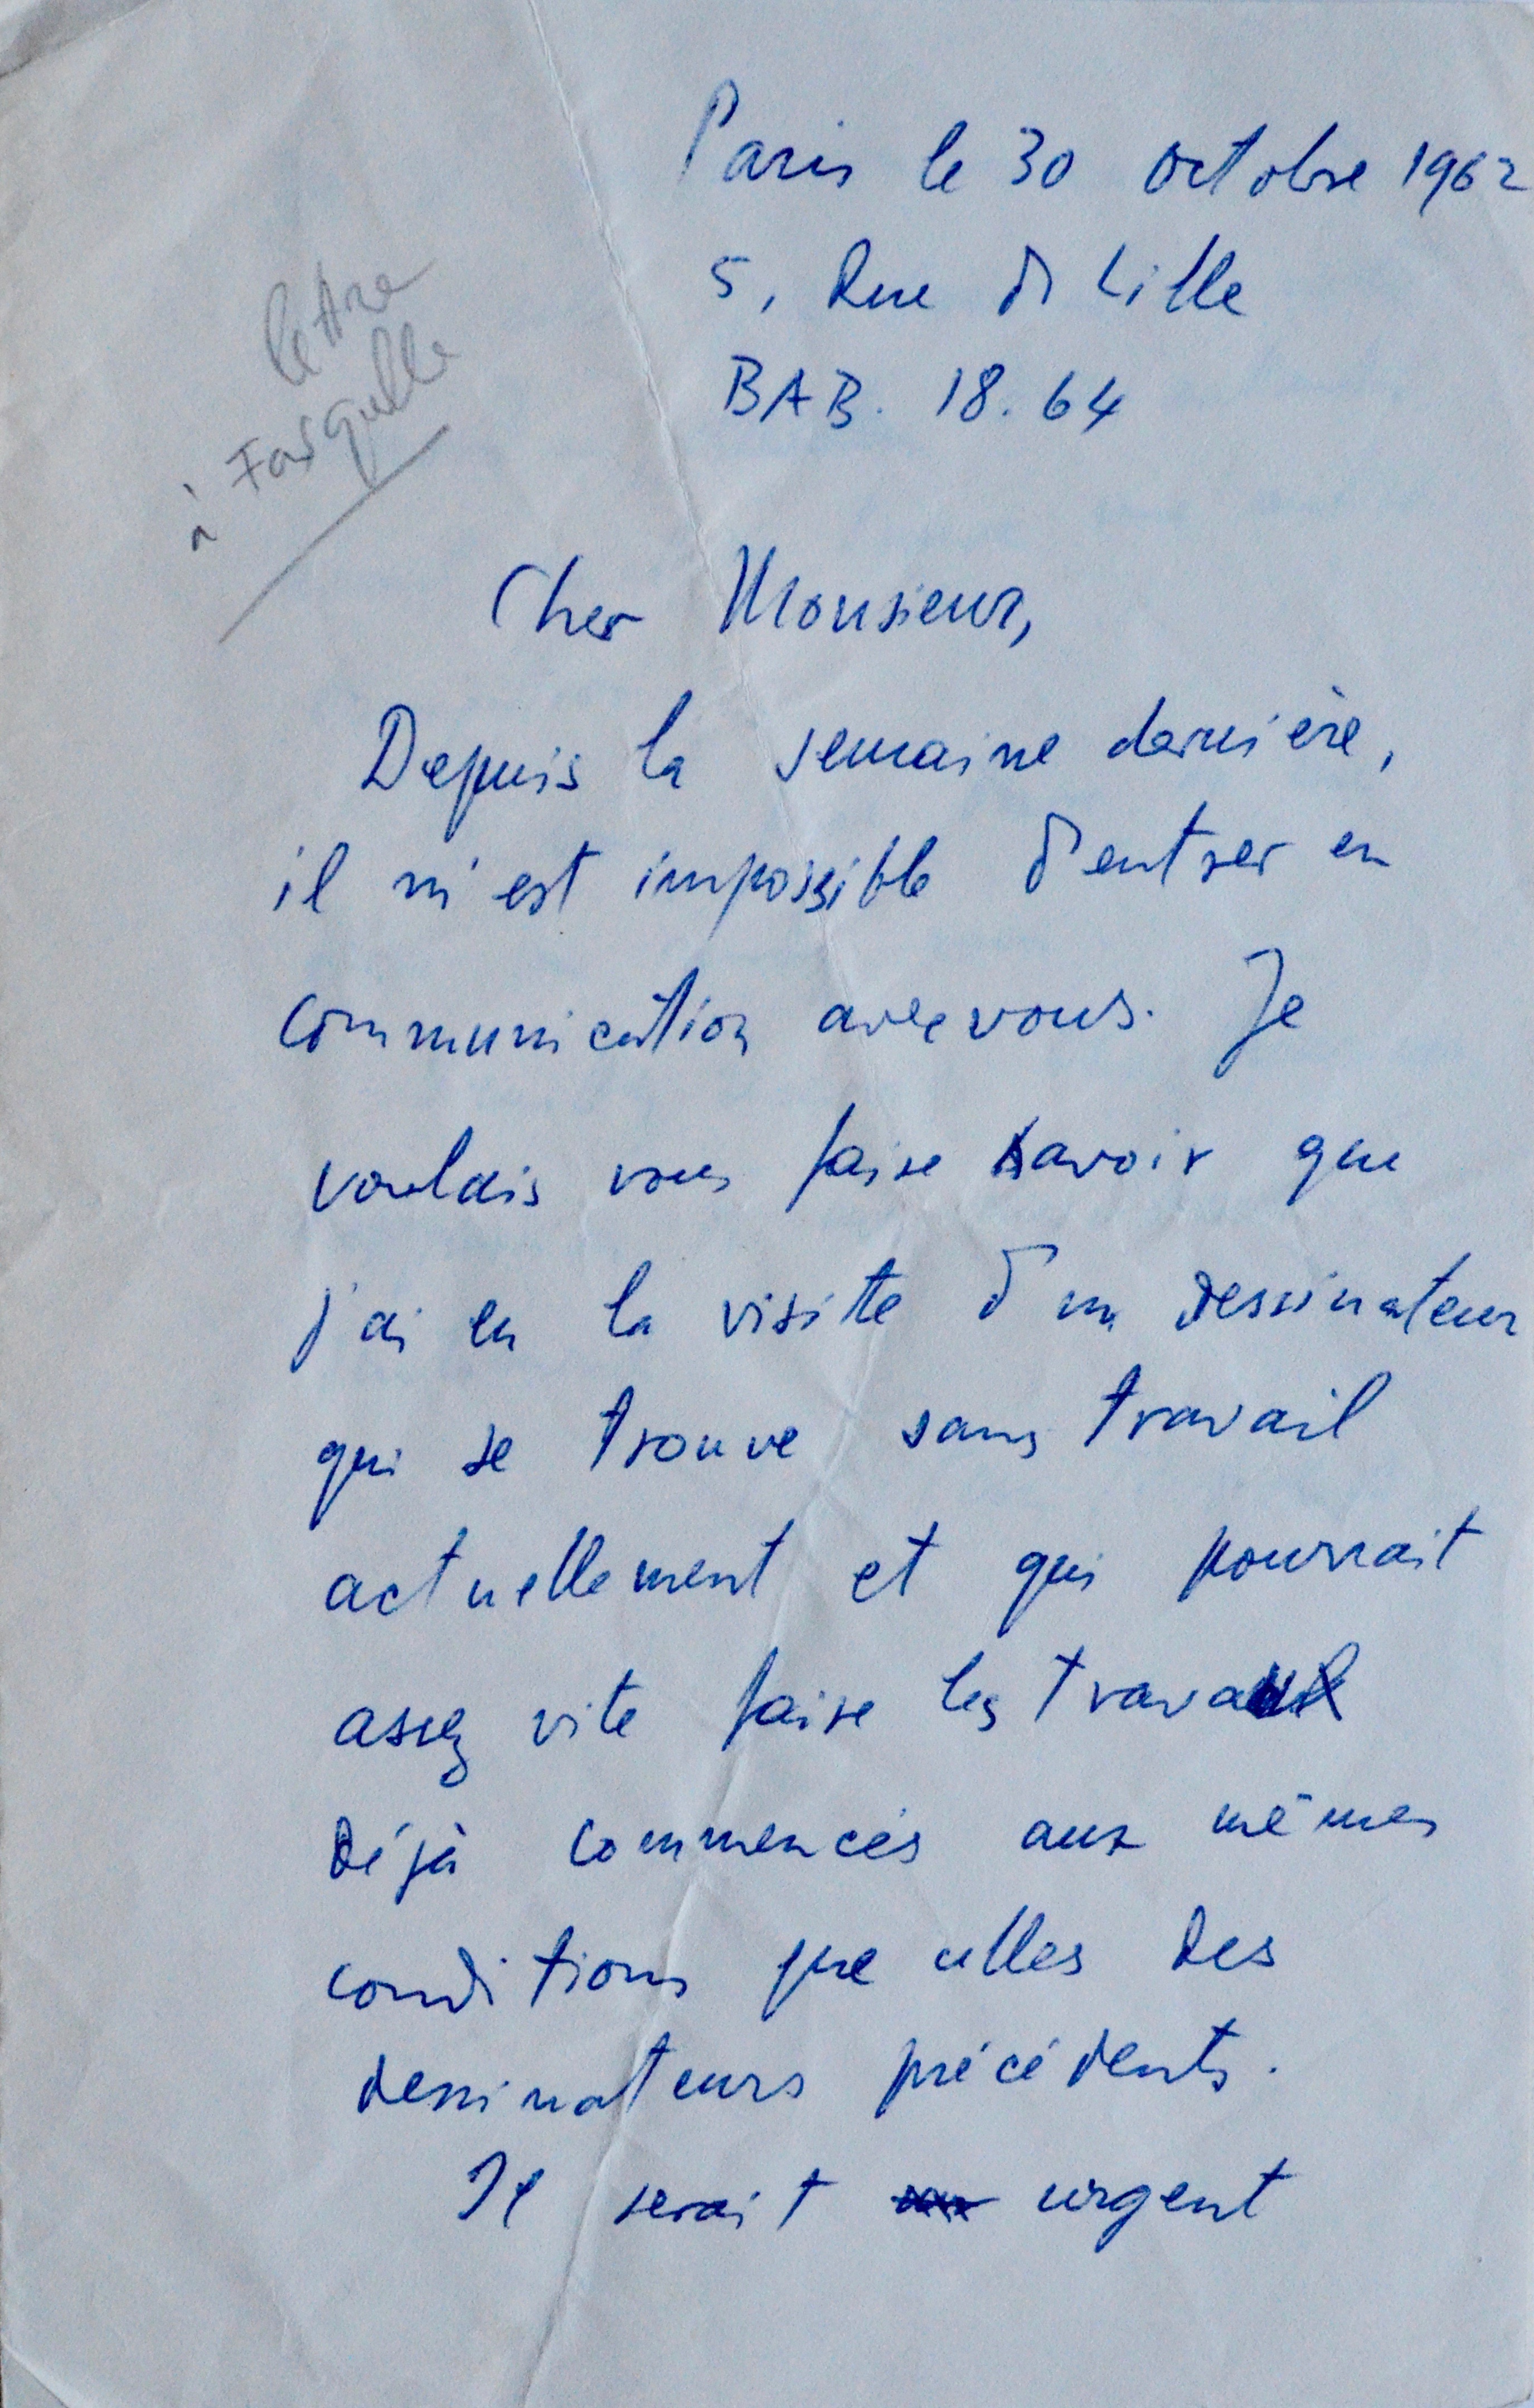 Paris le 30 octobre 1962
5, Rue de Lille
BAB. 18.64
lettre
à Fasquelle
Cher Monsieur,
Depuis la semaine dernière,
il m'est impossible d'entrer en
communication avec vous. Je
voulais vous faire savoir que
j'ai eu la visite d'un dessinateur
qui se trouve sans travail
actuellement et qui pourrait
assez vite faire les travaux
déjà commencés aux mêmes
conditions que celles des
dessinateurs précédents.
Il serait urgent